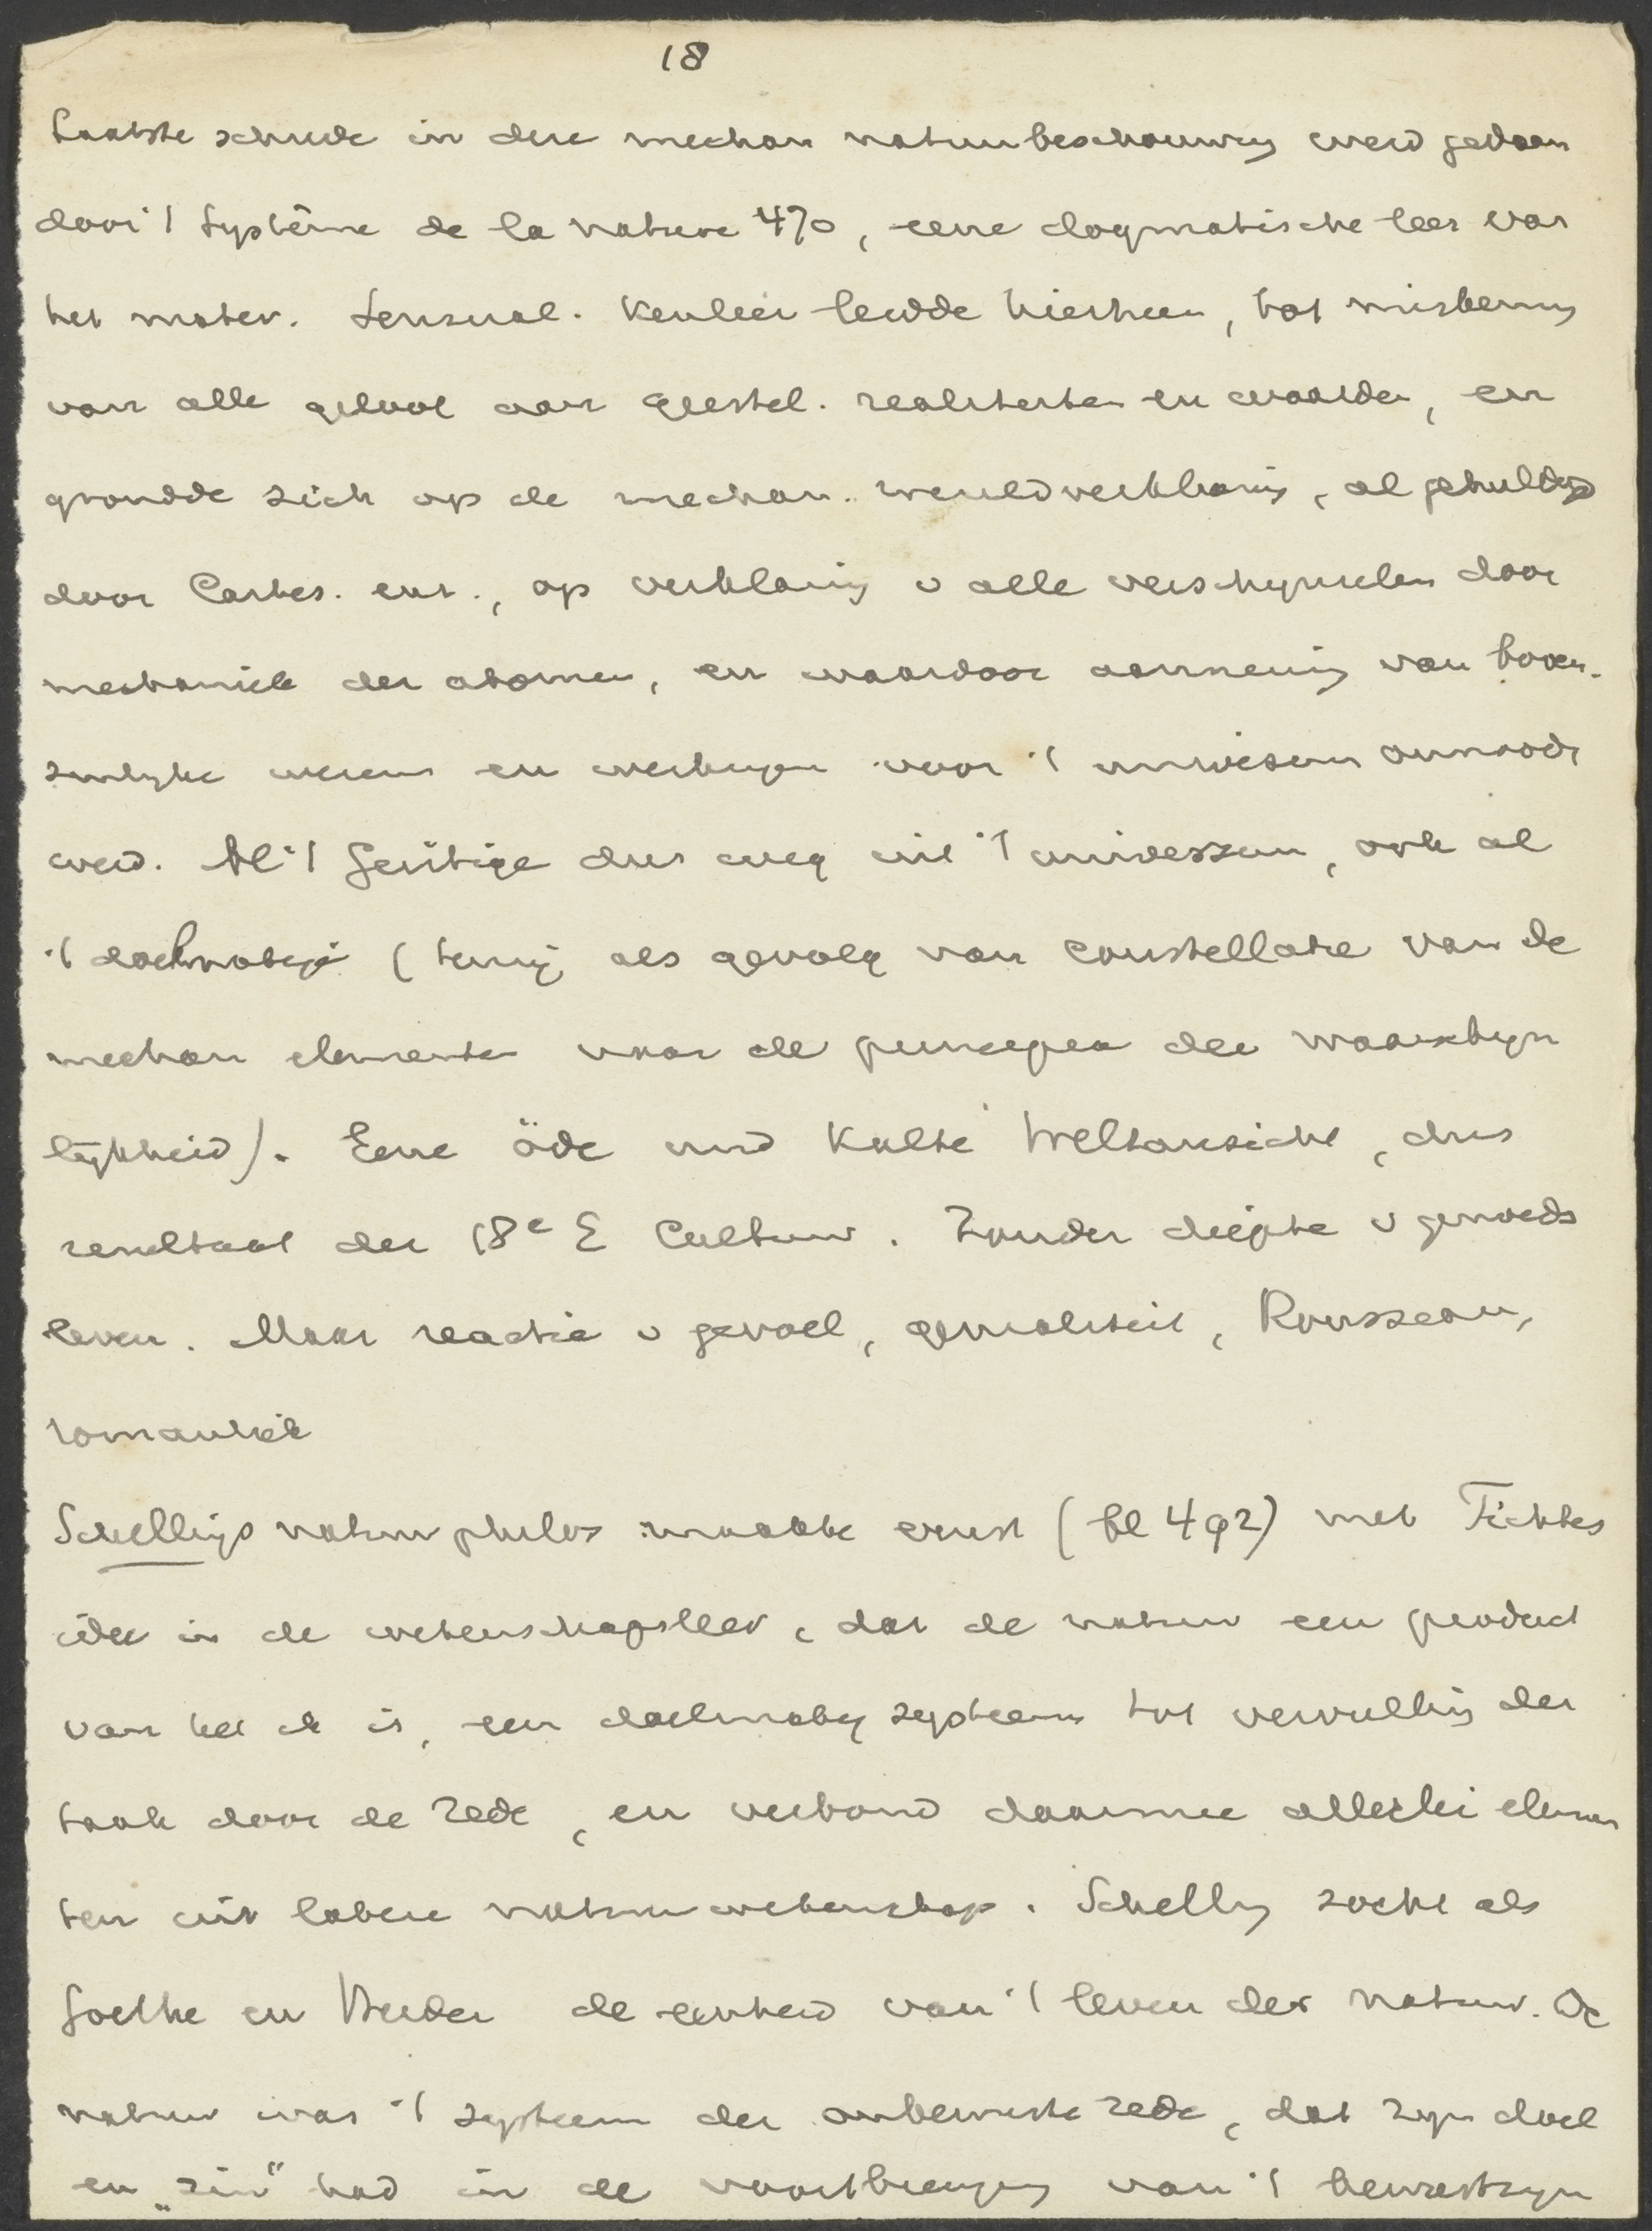 18
Laatste schrede in deze mechan natuurbeschouwing werd gedaan
door 't Système de la nature 470, eene dogmatische leer van
het mater. Sensual. Kenleer leidde hierheen, tot miskening
van alle geloof aan geestel. realiteiten en waarden, en
grondde zich op de mechan. wereldverklaring, al gehuldigd
door Cartes. enz., op verklaring v alle verschijnselen door
mechaniek der atomen, en waardoor aanneming van boven-
zinlyke wezens en werkingen voor 't universum onnoodig
werd. Al 't geestige dus weg uit 't universum, ook al
't doelmatige (tenzij als gevolg van constellatie van de
mechan elementen naar de principes der waarschyn
lijkheid). Eene öde und kalte Weltansicht, dus
resultaat der 18e E Cultuur. Zonder diepte v gemoeds
leven. Maar reactie v gevoel, genialiteit, Rousseau,
romantiek
Schellings natuurphilos maakte ernst (bl 492) met Fichtes
idee in de wetenschapsleer, dat de natuur een product
van het ik is, een doelmatig systeem tot vervulling der
taak door de rede, en verbond daarmee allerlei elemen
ten uit latere natuurwetenschap. Schelling zocht als
Goethe en Herder de eenheid van 't leven der natuur. De
natuur was 't systeem der onbewuste rede, dat zyn doel
en „zin" had in de voortbrenging van 't bewustzyn